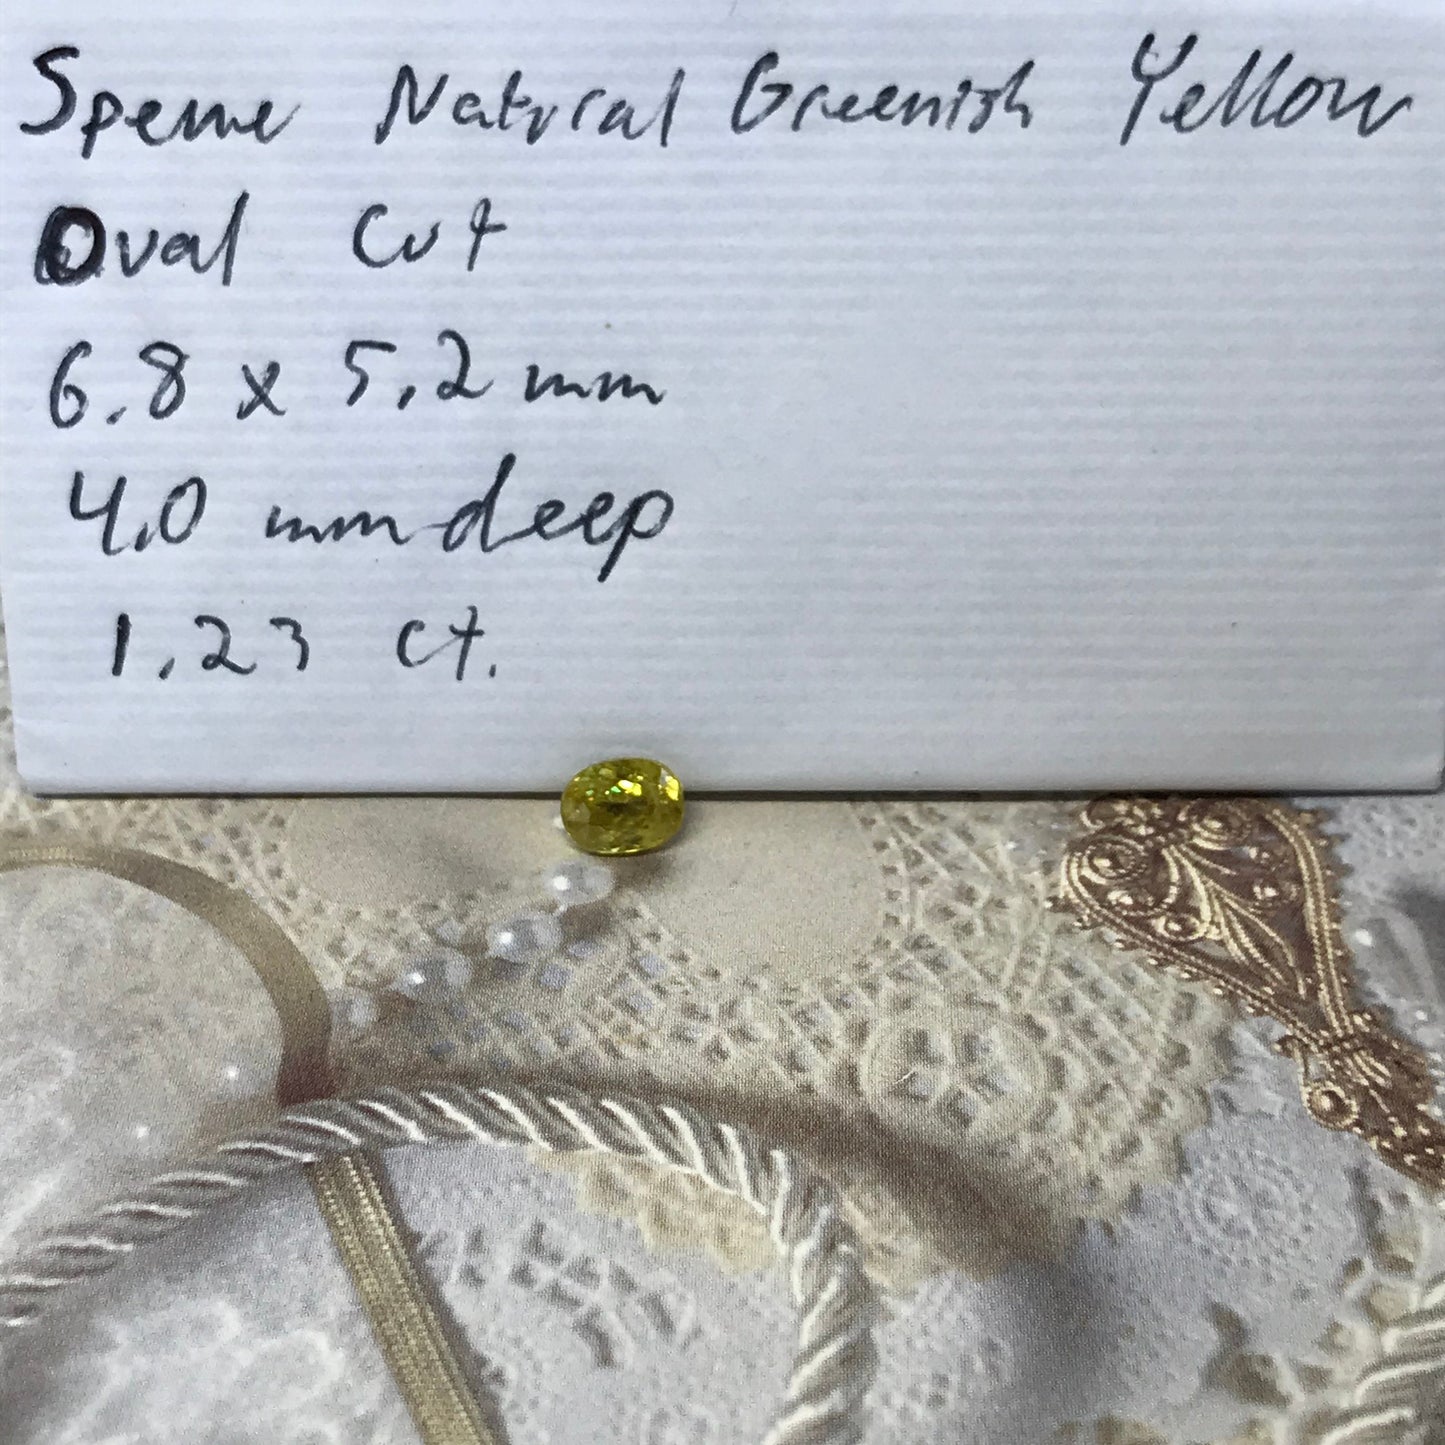 Spene Natural Greenish Yellow
Oval Cut
6.8 x 5.2 mm
4.0 mm deep
1.23 ct.